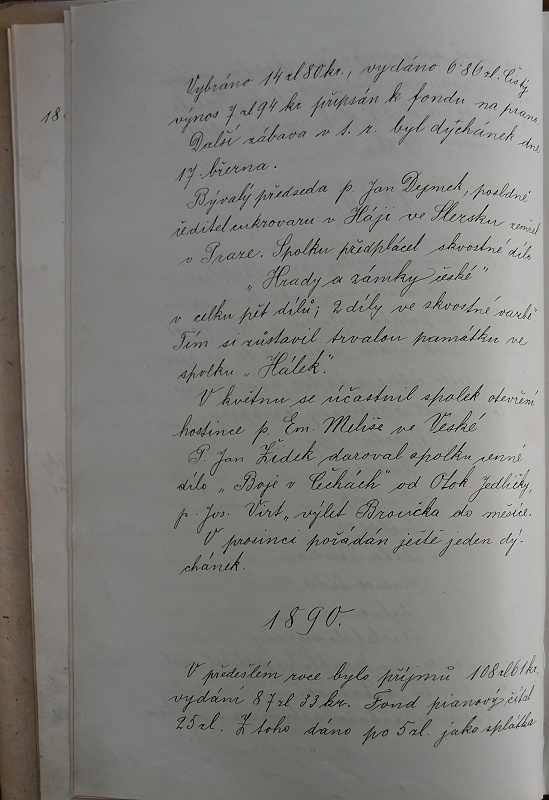 18
Vybráno 14 zl 80 kr., vydáno 6·86 zl. Čistý
výnos 7 zl 94 kr připsán k fondu na piano
Další zábava v t. r. byl dýchánek dne
17. března.
Bývalý předseda p. Jan Dejmek, posledně
ředitel cukrovaru v Háji ve Slezsku zemřel
v Praze. Spolku předplácel skvostné dílo
„Hrady a zámky české"
v celku pět dílů; 2 díly ve skvostné vazbě.
Tím si zůstavil trvalou památku ve
spolku „Hálek".
V květnu se účastnil spolek otevření
hostince p. Em. Meliše ve Veské
P. Jan Žídek daroval spolku cenné
dílo „Boje v Čechách" od Otok. Jedličky,
p. Jos. Virt „výlet Broučka do měsíce.
V prosinci pořádán ještě jeden dý-
chánek.
1890.
V předešlém roce bylo příjmů 108 zl 61 kr.
vydání 87 zl 33 kr. Fond pianový čítal
25 zl. Z toho dáno po 5 zl. jako splátka